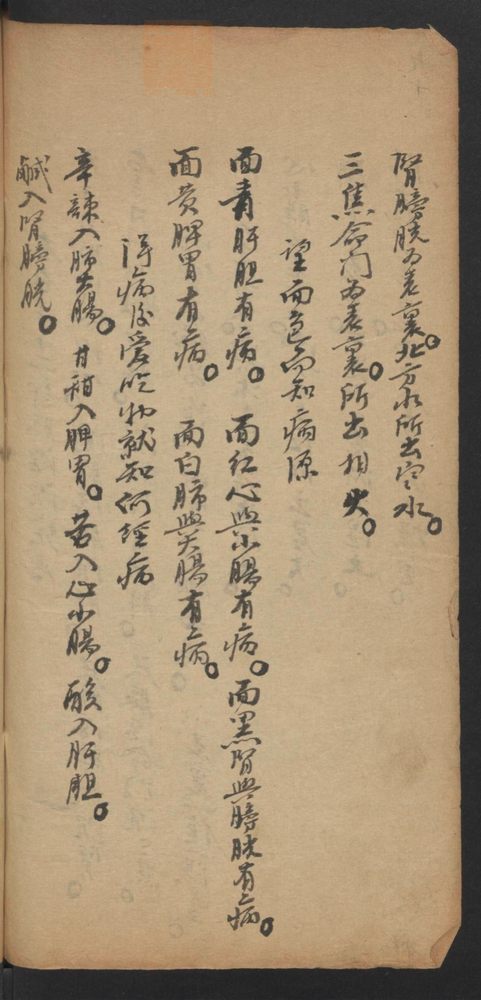 腎膀胱为表裏。北方水所出寒水。
三焦命门为表裏。所出相火。
望面色而知病源
面青肝胆有病。面红心與小腸有病。面黑腎與膀胱有病。
面黄脾胃有病。面白肺與大腸有病。
得病後愛吃物就知何經病
辛辣入肺大腸。甘甜入脾胃。苦入心小腸。酸入肝胆。
鹹入腎膀胱。